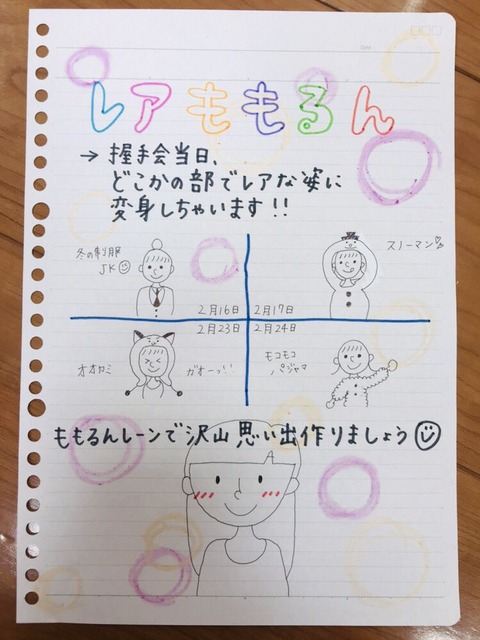 レアももるん
→ 握手会当日、
どこかの部でレアな姿に
変身しちゃいます!!
冬の制服
JK
2月16日
スノーマン
2月17日
オオカミ
ガオーっ!!
2月23日
2月24日
モコモコ
パジャマ
ももるんレーンで沢山思い出作りましょう